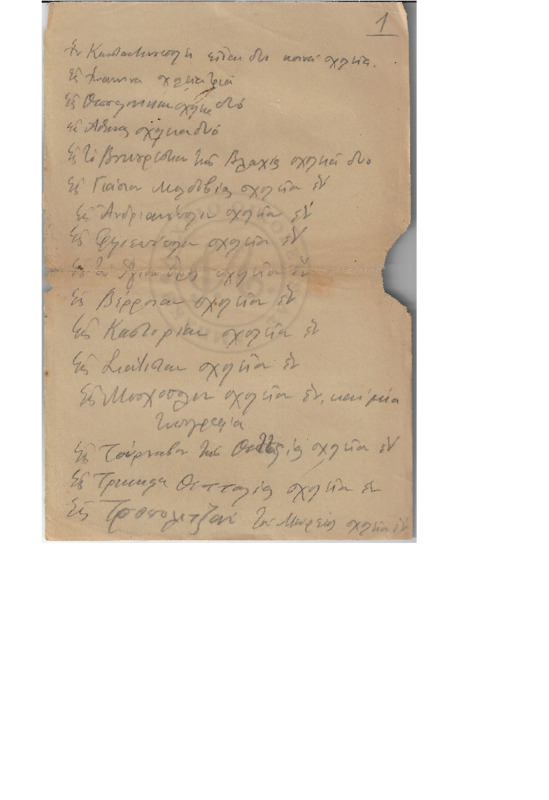 1
Ἐν Κωνσταντινουπόλει εἶναι δύο κοινά σχολεῖα.
εἰς Ἰωάννινα σχολεῖα τρία
εἰς Θεσσαλονίκην σχολεῖα δυό
εἰς Ἀθήνας σχολεῖα δυό
εἰς τό Βουκουρέστιον τῆς Βλαχίας σχολεῖα δυο
εἰς Γιάσιον Μολδοβίας σχολεῖον ἕν
εἰς Ἀνδριανούπολιν σχολεῖον ἕν
εἰς Φιλιππούπολιν σχολεῖον ἕν
εἰς τό Ἅγιον Ὄρος σχολεῖον ἕν
εἰς Βέρροιαν σχολεῖον ἕν
εἰς Καστορίαν σχολεῖον ἕν
εἰς Σιάτισταν σχολεῖον ἕν
εἰς Μοσχόπολιν σχολεῖον ἕν, και μία
τυπογραφία
εἰς Τούρναβον τῆς Θετταλίας σχολεῖον ἕν
εἰς Τρίκκαλα Θετταλίας σχολεῖον ἕν
εἰς Τροπολιτζάν τοῦ Μωρέως σχολεῖον ἕν